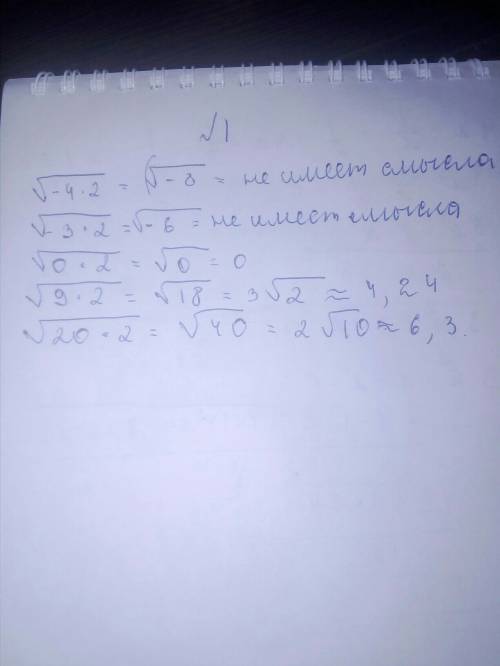 √1
√-4·2 = √-8 = не имеет смысла
√-3·2 = √-6 = не имеет смысла
√0·2 = √0 = 0
√9·2 = √18 = 3√2 ≈ 4,24
√20·2 = √40 = 2√10 ≈ 6,3.